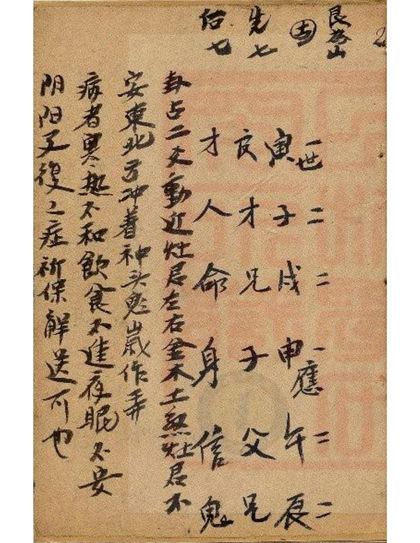 艮為山
吉
先七
七
一世二二一應二二
寅子戌申午辰
才兄子父兄
才人命身信鬼
卦占二爻動近灶君左右金木土煞灶君不
安東北方冲着神头鬼作弄
病者寒热不和飲食不進夜眠不安
阴阳反復之症祈保解送可也